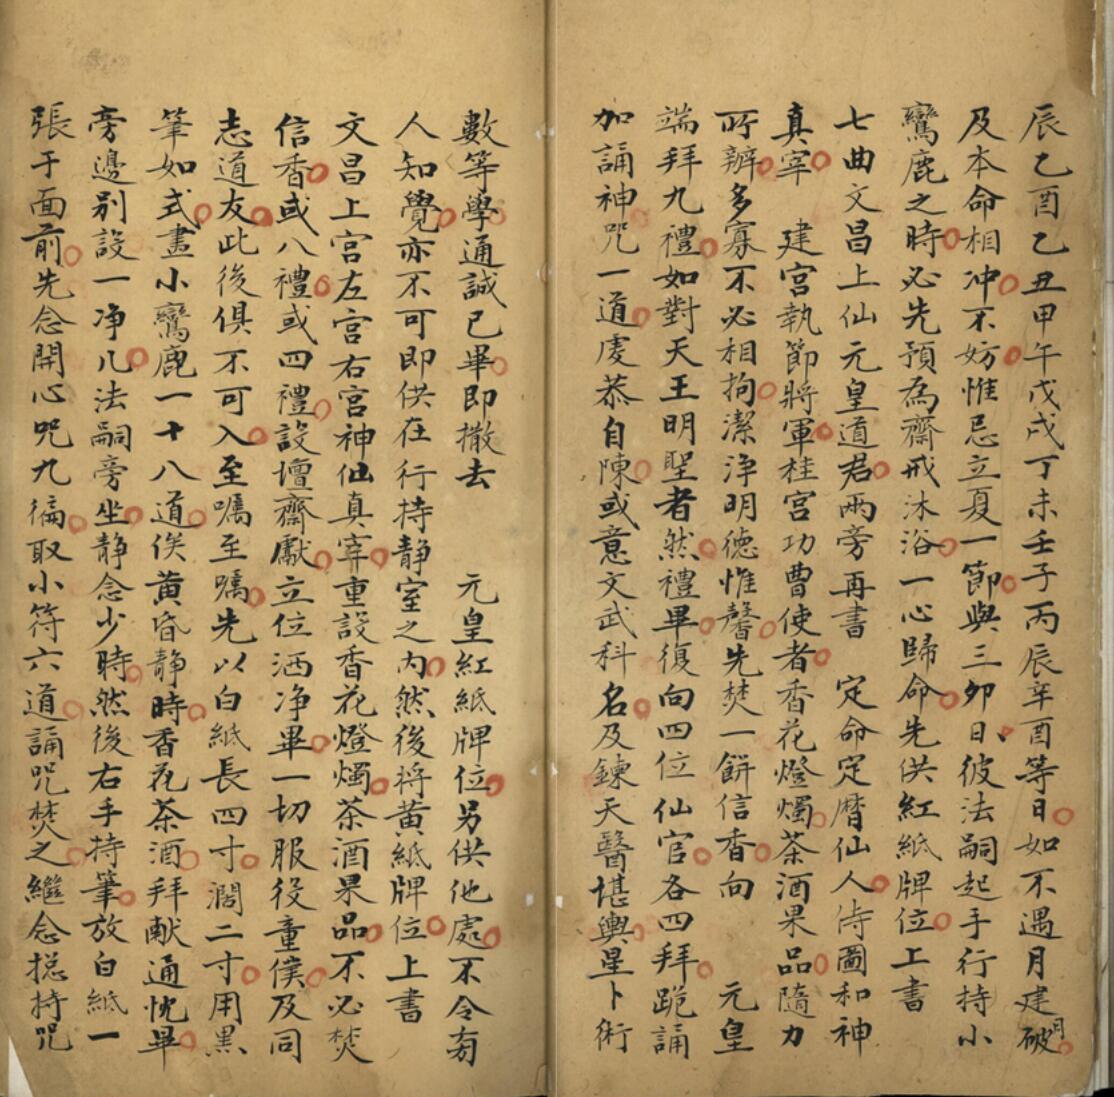 辰乙酉乙丑甲午戊戌丁未壬子丙辰辛酉等日如不遇月建破日
及本命相冲不妨惟忌立夏一節與三卯日彼法嗣起手行持小
鸞鹿之時必先預為齋戒沐浴一心歸命先供紅紙牌位上書
七曲文昌上仙元皇道君兩旁再書 定命定曆仙人侍圖和神
真宰 建宮執節將軍桂宮功曹使者香花燈燭茶酒果品隨力
所辦多寡不必相拘潔淨明德惟馨先焚一餅信香向 元皇
端拜九禮如對天王明聖者然禮畢復向四位仙官各四拜跪誦
加誦神咒一道虔恭自陳或意文武科名及鍊天醫堪輿星卜術
數等學通誠已畢即撤去 元皇紅紙牌位另供他處不令有
人知覺亦不可即供在行持靜室之內然後將黃紙牌位上書
文昌上宮左宮右宮神仙真宰重設香花燈燭茶酒果品不必焚
信香或八禮或四禮設壇齋獻立位洒净畢一切服役童僕及同
志道友此後俱不可入至囑至囑先以白紙長四寸濶二寸用黑
筆如式畫小鸞鹿一十八道俟黄昏靜時香花茶酒拜献通忱畢
旁邊別設一净几法嗣旁坐靜念少時然後右手持筆放白紙一
張于面前先念開心咒九徧取小符六道誦咒焚之繼念揔持咒